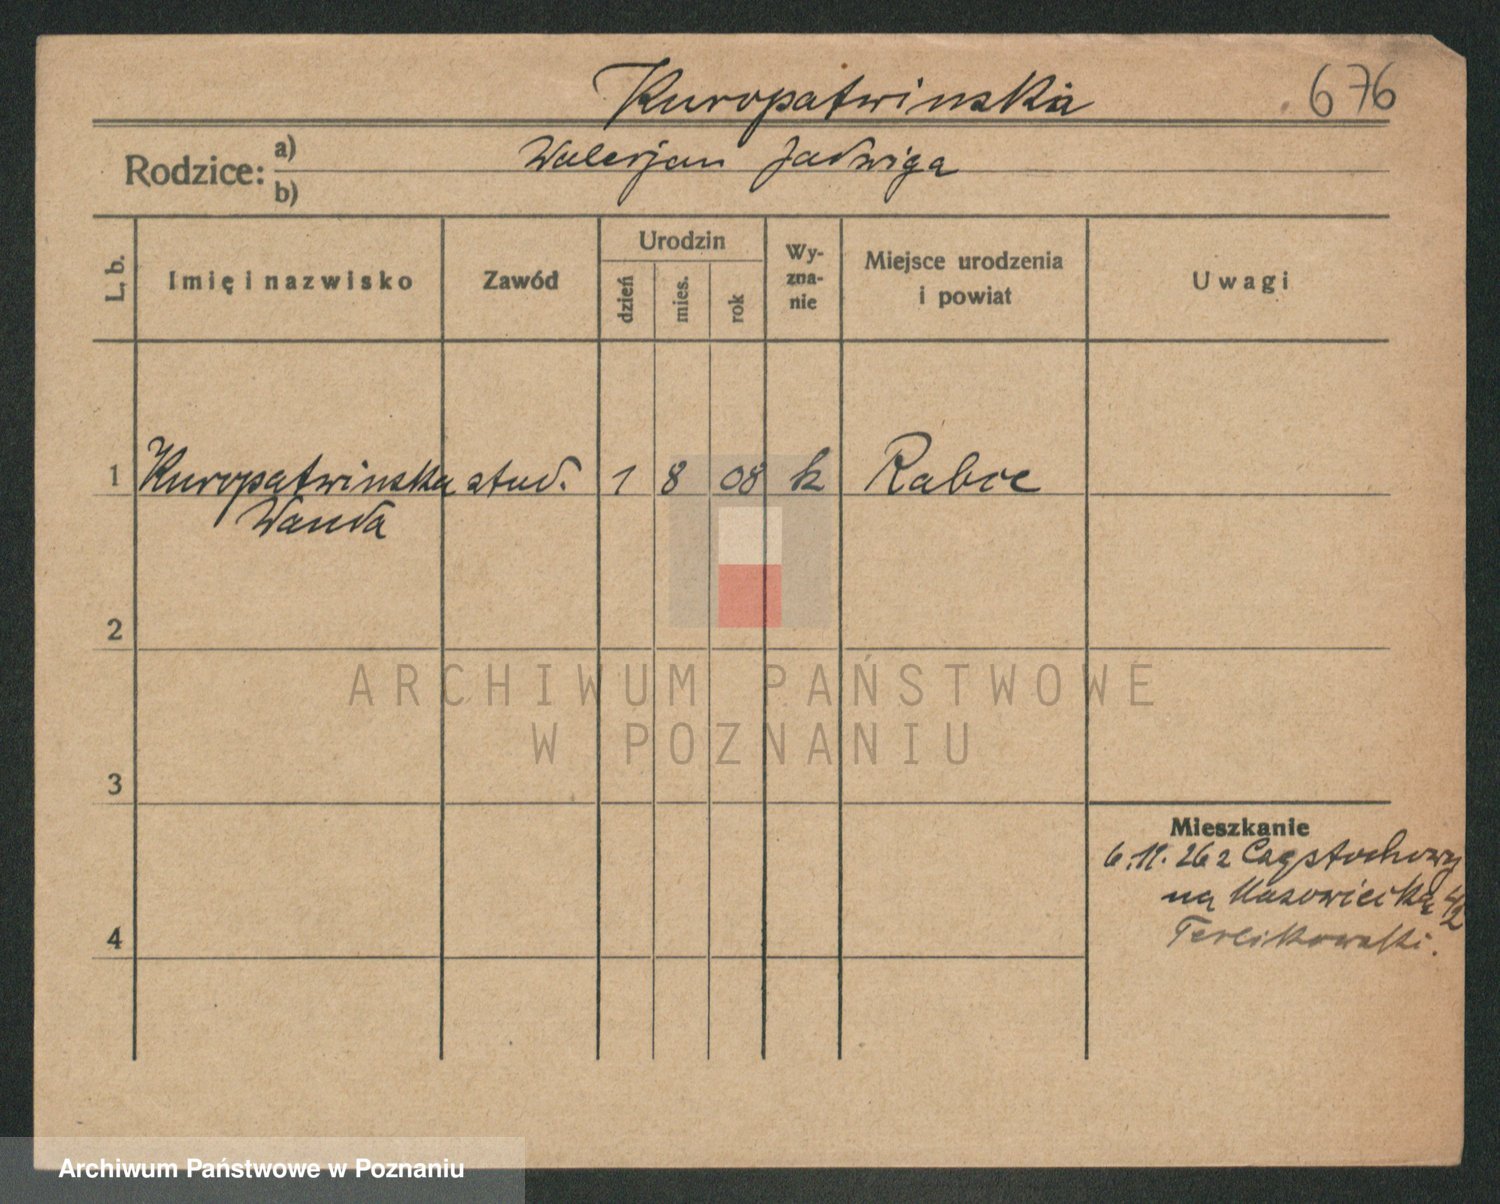 Kuropatwinska
676
Rodzice: a) Walerjan Jadwiga
b)
L. b.
Imię i nazwisko
Zawód
Urodzin
dzień
mies.
rok
Wy-
zna-
nie
Miejsce urodzenia
i powiat
Uwagi
1 Kuropatwinska stud. 1 8 08 k
Wanda
2
3
4
Mieszkanie
6.11.26 z Częstochowy
na Mazowiecką 4/2
Terlikowski.
ARCHIWUM PAŃSTWOWE
W POZNANIU
Archiwum Państwowe w Poznaniu